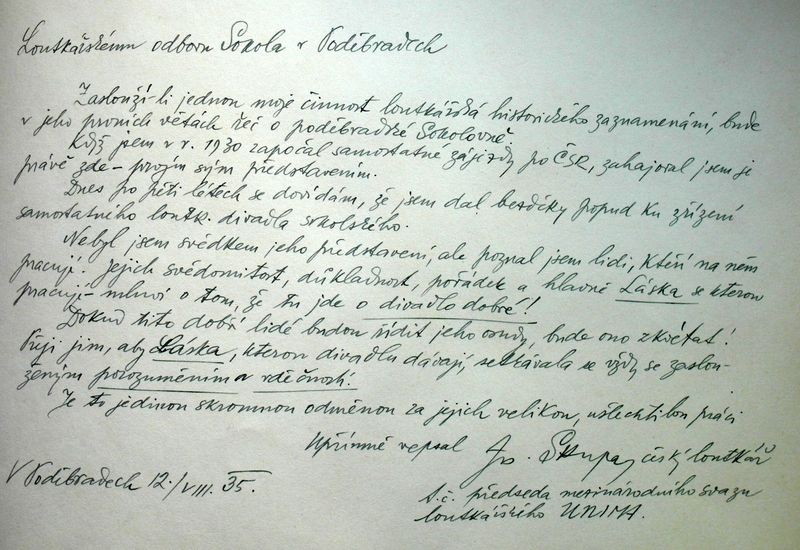 Loutkářskému odboru Sokola v Poděbradech
Zaslouží-li jednou moje činnost loutkářská historického zaznamenání, bude
v jeho prvních větách řeč o poděbradské Sokolovně.
Když jsem v r. 1930 započal samostatné zájezdy po ČSR, zahajoval jsem je
právě zde - prvým svým představením.
Dnes po pěti létech se dovídám, že jsem dal bezděky popud ku zřízení
samostatného loutk. divadla sokolského.
Nebyl jsem svědkem jeho představení, ale poznal jsem lidi, kteří na něm
pracují. Jejich svědomitost, důkladnost, pořádek a hlavně Láska se kterou
pracují - mluví o tom, že tu jde o divadlo dobré!
Dokud tito dobří lidé budou řídit jeho osudy, bude ono zkvétat!
Přeji jim, aby Láska, kterou divadlu dávají, setkávala se vždy se zaslou-
ženým porozuměním a vděčností.
Je to jedinou skromnou odměnou za jejich velikou, ušlechtilou práci
Upřímně vepsal Jos. Skupa, český loutkář
V Poděbradech 12./VIII. 35.
t.č. předseda mezinárodního svazu
loutkářského UNIMA.